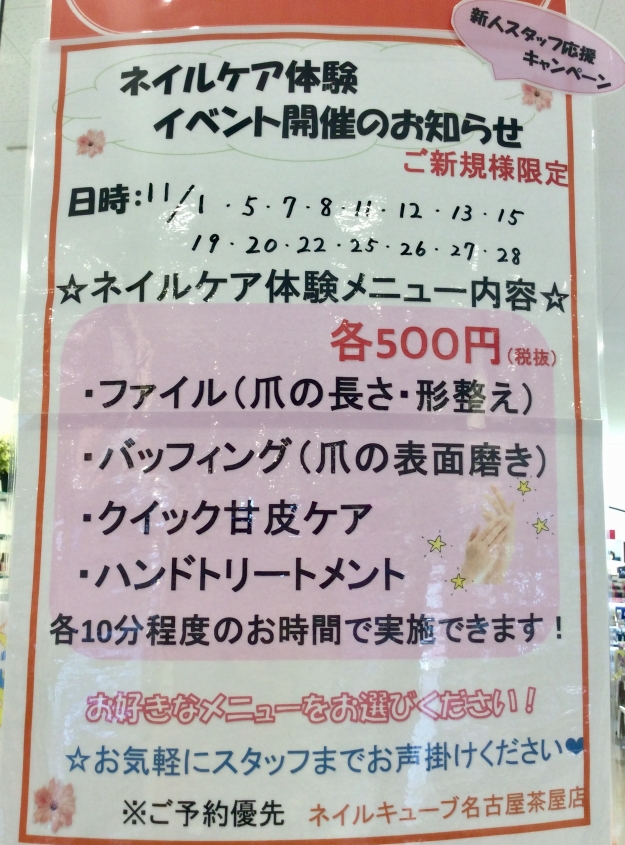 新人スタッフ応援
キャンペーン
ネイルケア体験
イベント開催のお知らせ
ご新規様限定
日時:11/1・5・7・8・11・12・13・15
19・20・22・25・26・27・28
☆ネイルケア体験メニュー内容☆
各500円(税抜)
・ファイル(爪の長さ・形整え)
・バッフィング(爪の表面磨き)
・クイック甘皮ケア
・ハンドトリートメント
各10分程度のお時間で実施できます!
お好きなメニューをお選びください!
☆お気軽にスタッフまでお声掛けください♥
※ご予約優先 ネイルキューブ名古屋茶屋店